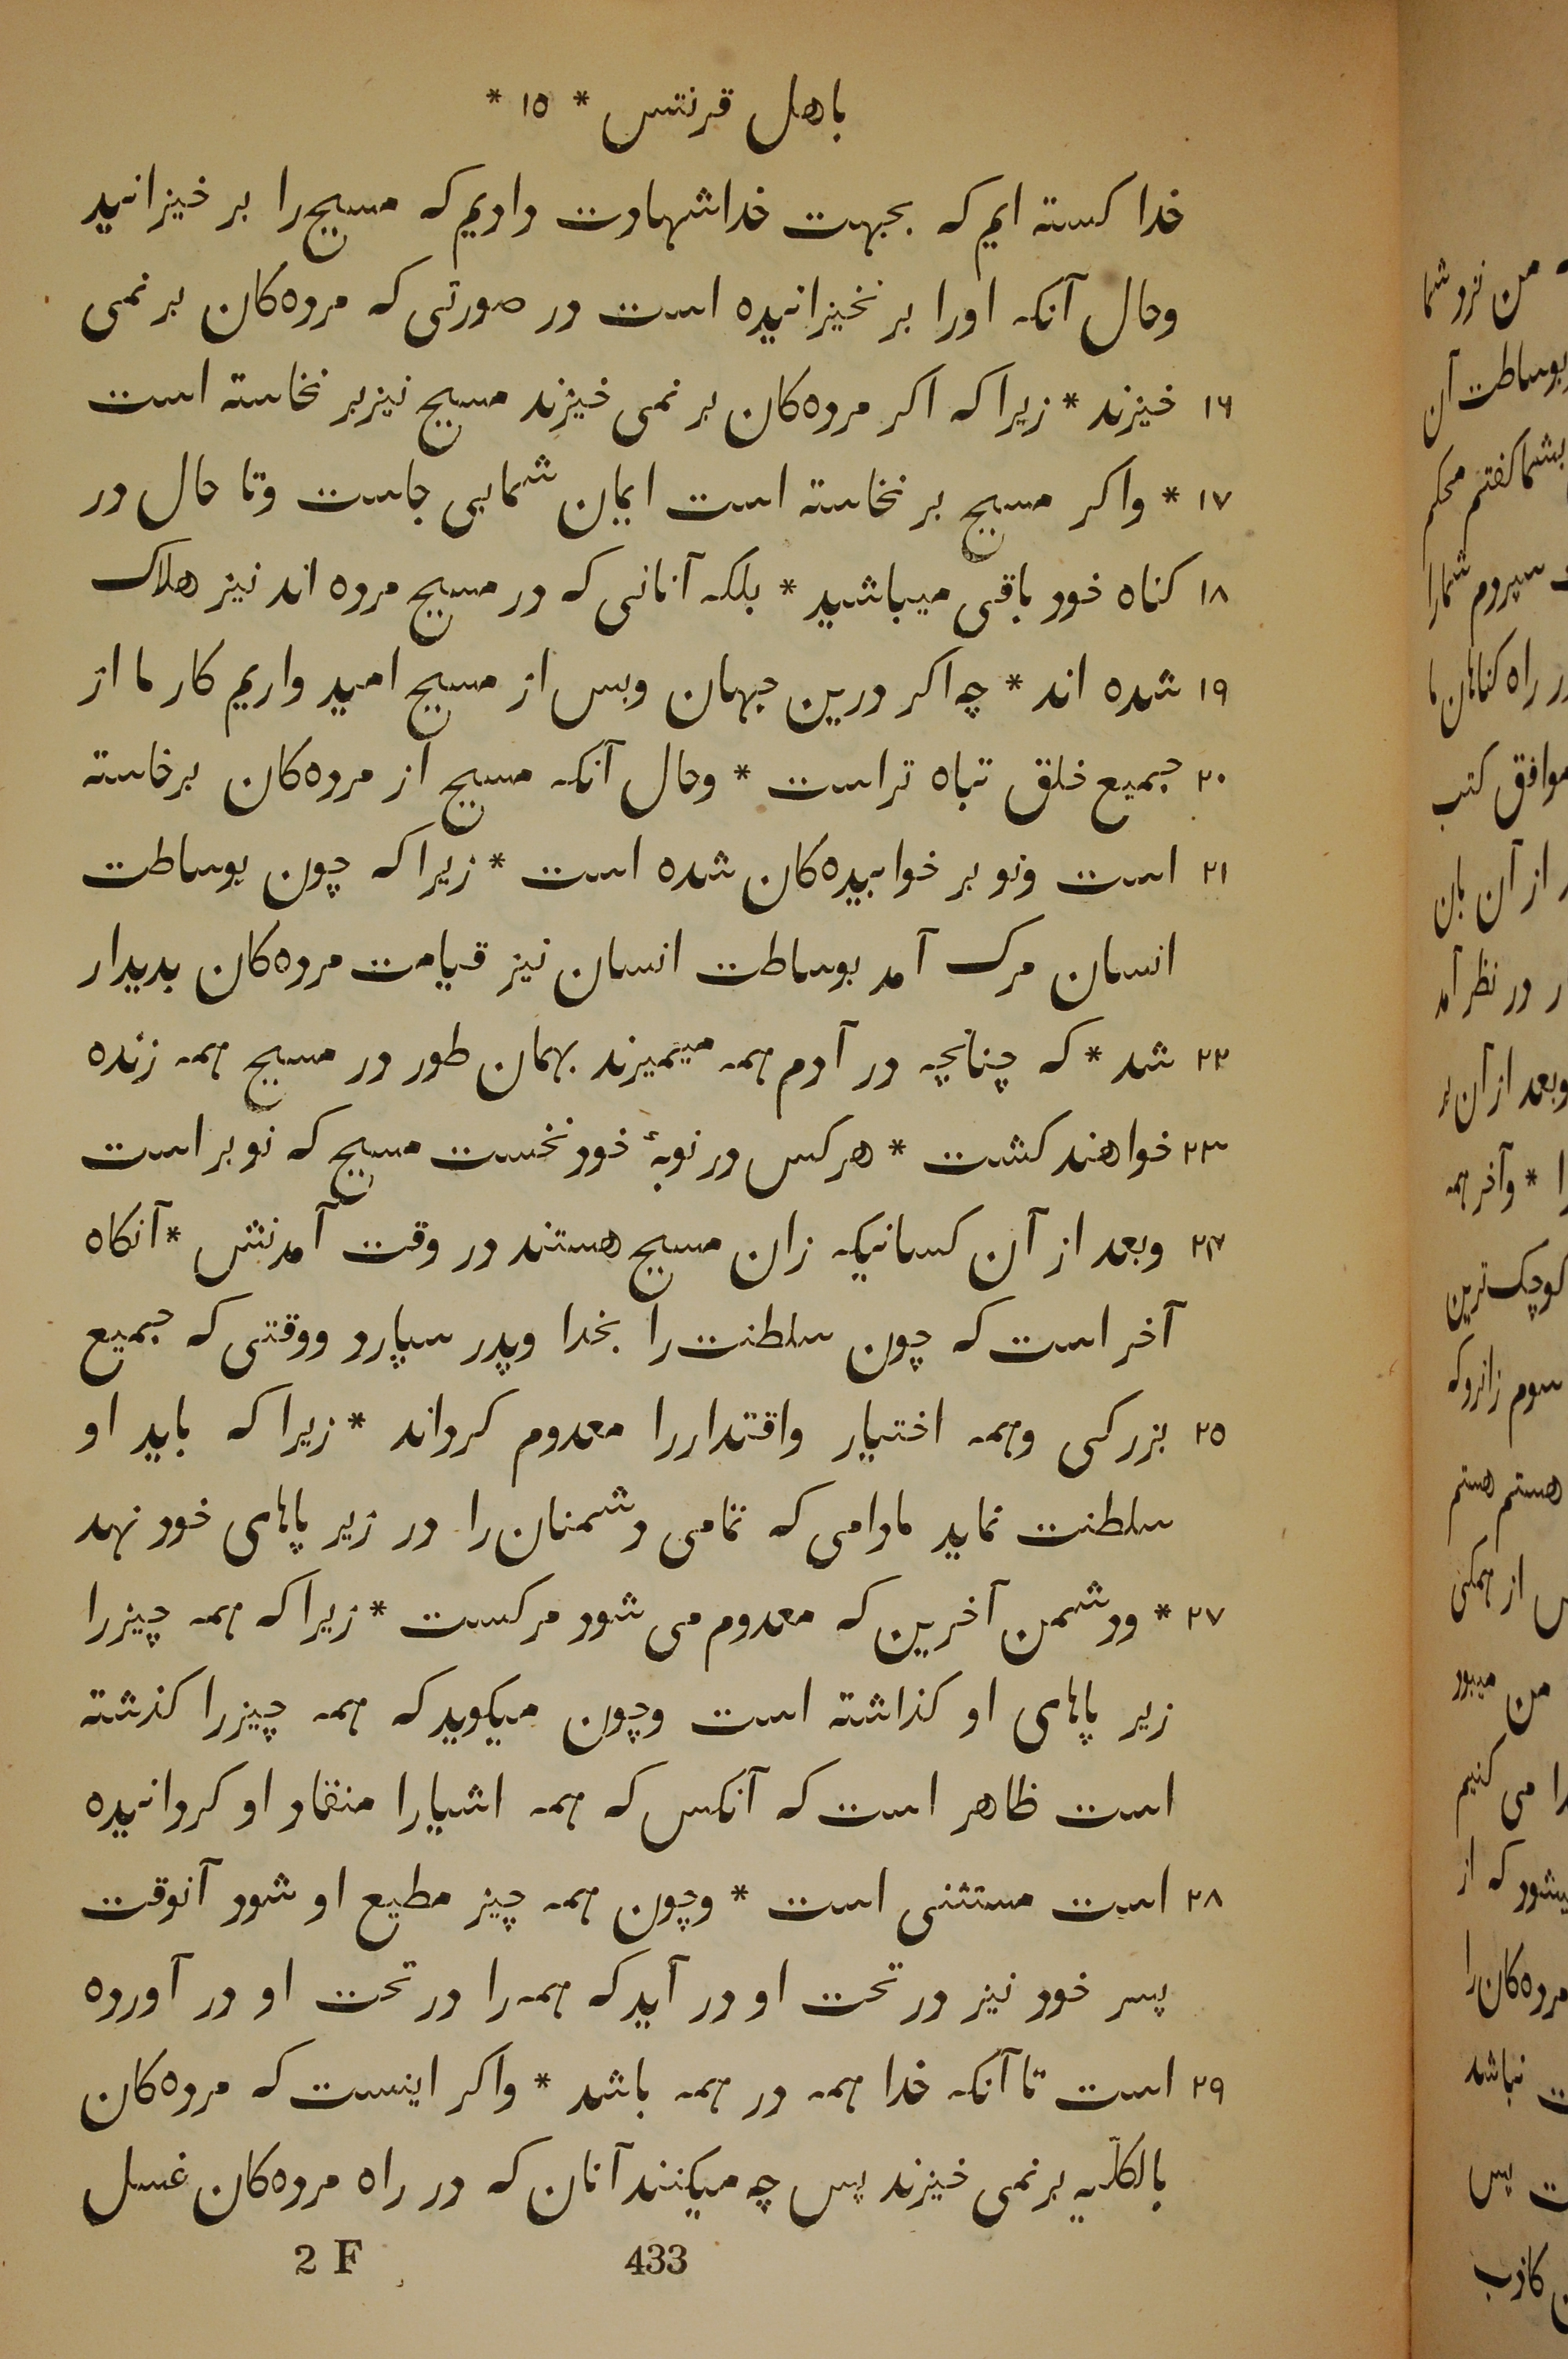 باهل قرنتس * ١٥ *
خدا کسته ایم که بجهت خدا شهادت دادیم که مسیح را بر خیزانید
وحال آنکه اورا بر نخیزانیده است در صورتی که مرده‌کان بر نمی
١٦ خیزند * زیرا که اکر مرده‌کان بر نمی خیزند مسیح نیز بر نخاسته است
١٧ * واکر مسیح بر نخاسته است ایمان شما بی جاست وتا حال در
١٨ کناه خود باقی میباشید * بلکه آنانی که در مسیح مرده اند نیز هلاک
١٩ شده اند * چه اکر درین جهان وبس از مسیح امید داریم کار ما از
٢٠ جمیع خلق تباه تر است * وحال آنکه مسیح از مرده‌کان برخاسته
٢١ است ونو بر خوابیده‌کان شده است * زیرا که چون بوساطت
انسان مرک آمد بوساطت انسان نیز قیامت مرده‌کان بدیدار
٢٢ شد * که چنانچه در آدم همه میمیرند بهمان طور در مسیح همه زنده
٢٣ خواهند کشت * هر کس در نوبهٔ خود نخست مسیح که نو بر است
٢٤ وبعد از آن کسانیکه زان مسیح هستند در وقت آمدنش * آنکاه
آخر است که چون سلطنت را بخدا وپدر سپارد ووقتی که جمیع
٢٥ بزرکی وهمه اختیار واقتدار را معدوم کرداند * زیرا که باید او
سلطنت نماید مادامی که تمامی دشمنان را در زیر پاهای خود نهد
٢٧ * ودشمن آخرین که معدوم می شود مرکست * زیرا که همه چیز را
زیر پاهای او کذاشته است وچون میکوید که همه چیز را کذشته
است ظاهر است که آنکس که همه اشیا را منقاد او کردانیده
٢٨ است مستثنی است * وچون همه چیز مطیع او شود آنوقت
پسر خود نیز در تحت او در آید که همه را در تحت او در آورده
٢٩ است تا آنکه خدا همه در همه باشد * واکر اینست که مرده‌کان
بالکلّیه بر نمی خیزند پس چه میکنند آنان که در راه مرده‌کان غسل
2 F 433
من نزد شما
بوساطت آن
بشما کفتم محکم
سپردم شمارا
راه کناهان ما
موافق کتب
از آن بان
در نظر آمد
وبعد از آن بر
را * وآخر همه
کوچک ترین
سوم زانرو که
هستم هستم
از همکی
من میبود
را می کنیم
میشود که از
مرده‌کان را
نباشد
پس
کاذب